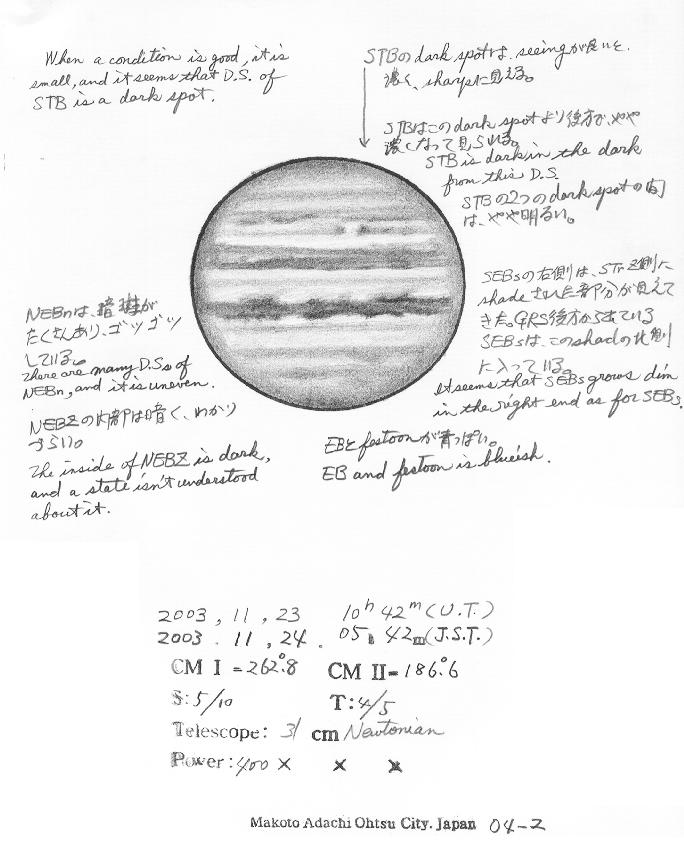 When a condition is good, it is
small, and it seems that D.S. of
STB is a dark spot.
STBのdark spotは、seeingが良いと、
濃く、sharpに見える。
STBはこのdark spotより後方で、やや
濃くなって見られる。
STB is dark in the dark
from this D.S.
STBの2つのdark spotの間
は、やや明るい。
SEBsの右側は、STrZ側に
shadeされた部分が見えて
きた。GRS後方から出ている
SEBsは、このshadの北側
に入っている。
It seems that SEBs grows dim
in the right end as for SEBs.
NEBnは、暗斑が
たくさんあり、ゴツゴツ
している。
There are many D.Ss of
NEBn, and it is uneven.
NEBZの内部は暗く、わかり
づらい。
The inside of NEBZ is dark,
and a state isn't understood
about it.
EBとfestoonが青っぽい。
EB and festoon is blueish.
2003, 11, 23 10h 42m (U.T.)
2003. 11, 24. 05h 42m (J.S.T.)
CM I = 262°.8 CM II = 186°.6
S: 5/10 T: 4/5
Telescope: 31 cm Newtonian
Power: 400 × × ×
Makoto Adachi Ohtsu City. Japan 04-2